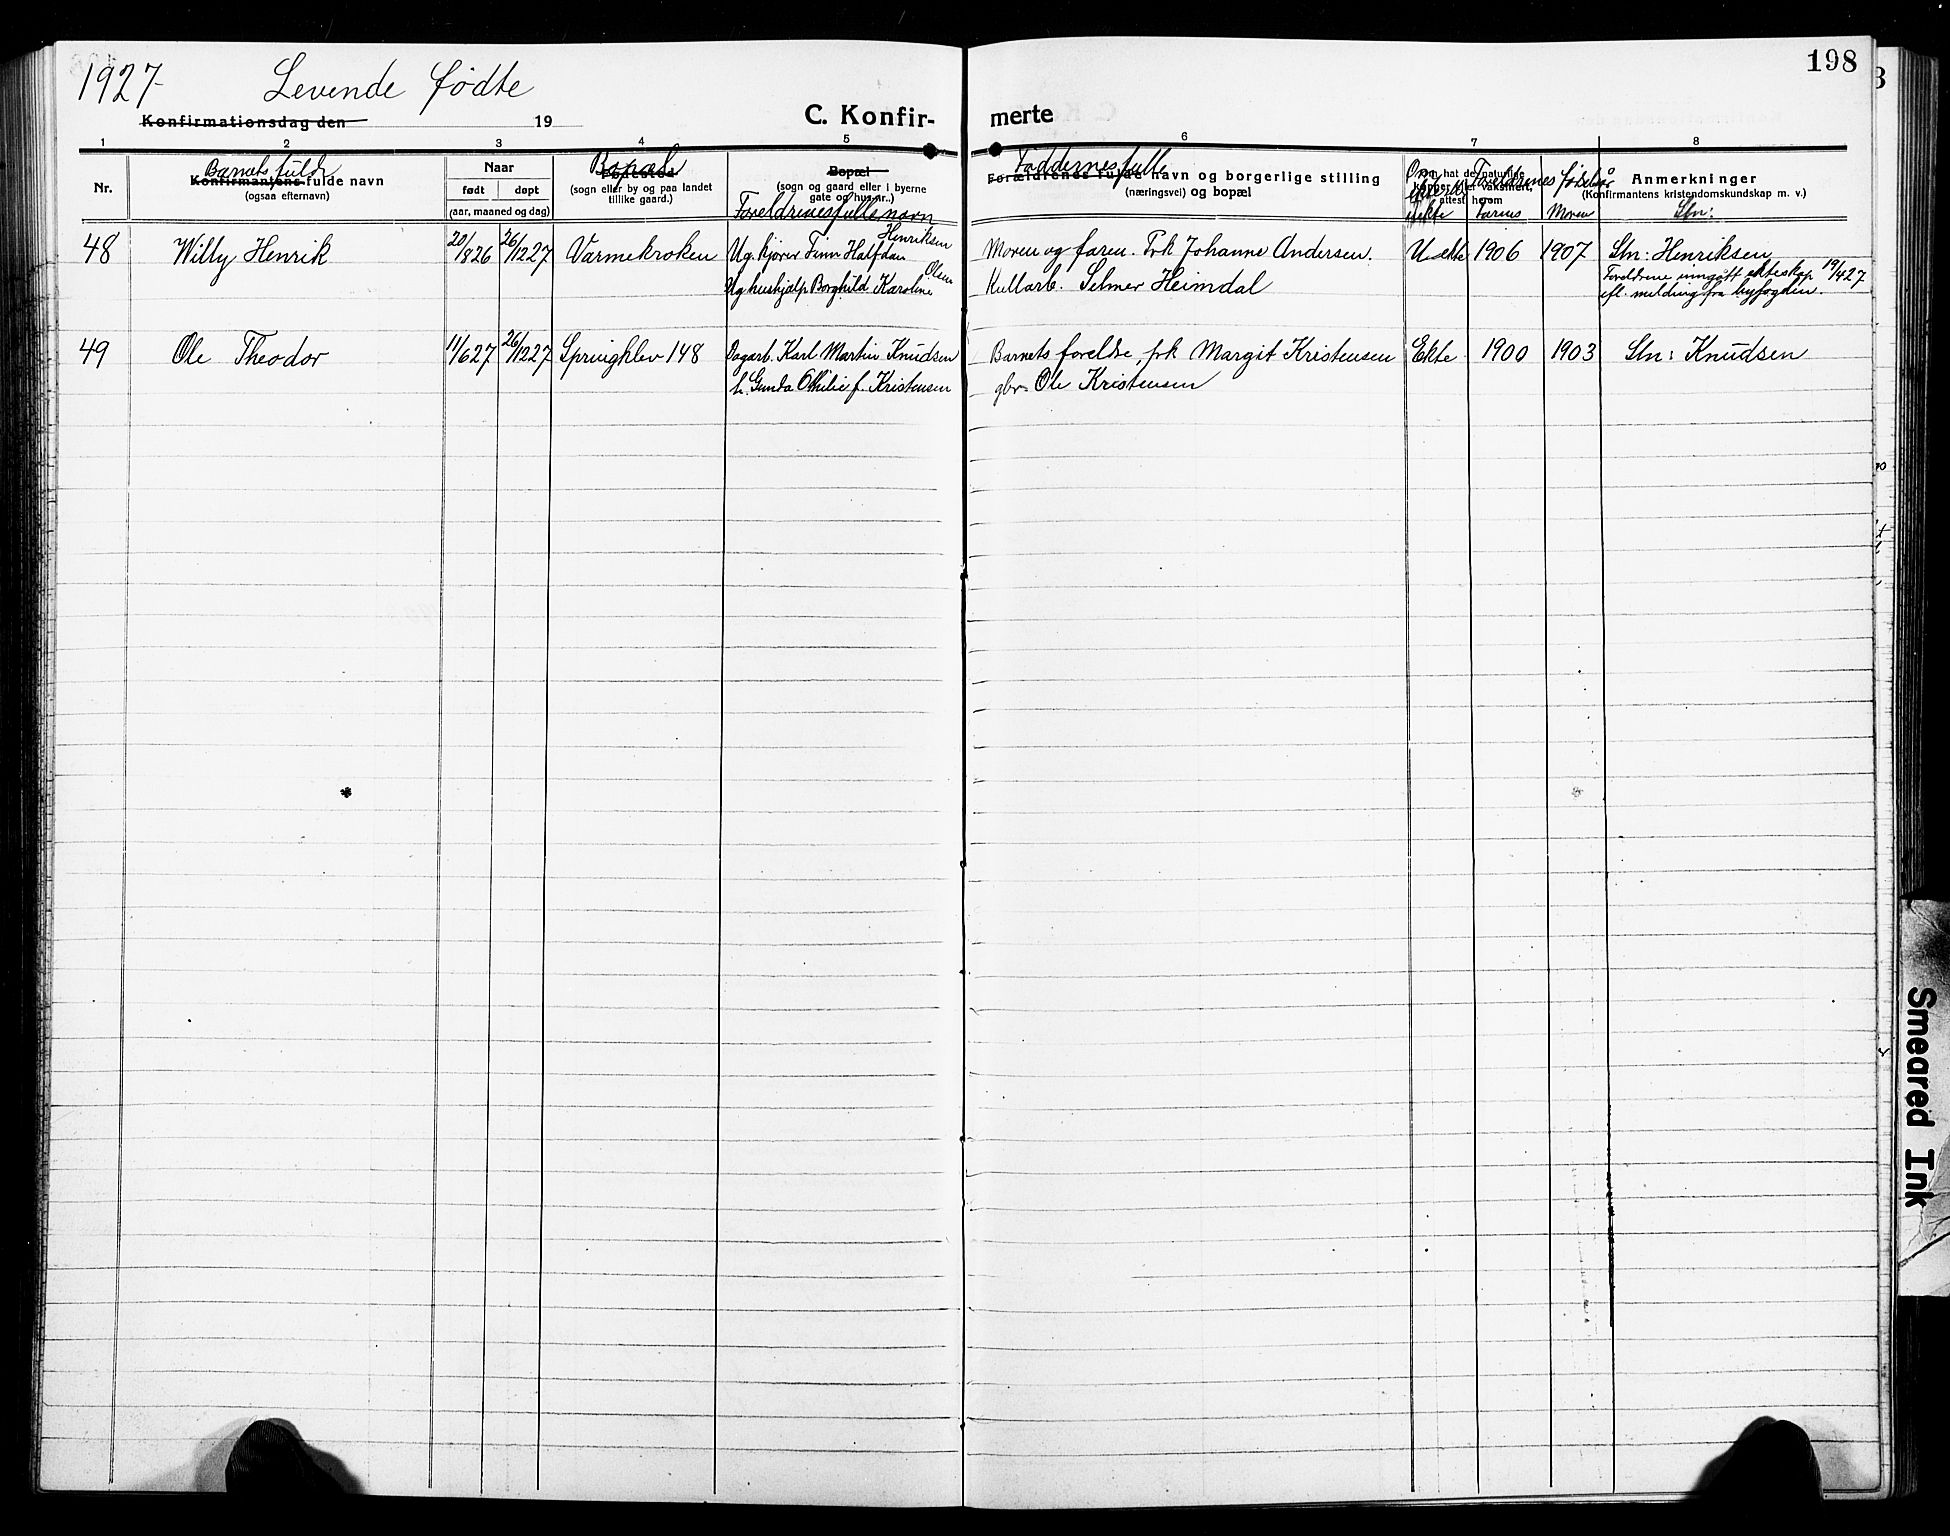 198
1927 Levende fødte
Konfirmationsdag den 19
C. Konfir- merte
1 2 3 4 5 6 7 8
Nr.
Barnets fulde
Konfirmantens fulde navn
(ogsaa efternavn)
Naar
født døpt
(aar, maaned og dag)
Bopæl
(sogn eller by og paa landet
tillike gaard.)
Bopæl
(sogn og gaard eller i byerne
gate og husnr.)
Foreldrenes fulle navn
Faddernes fulle
Forældrenes fulde navn og borgerlige stilling
(næringsvei) og bopæl
Om
ekte
Om har hat de naturlige
attest herom
Foreldrenes fødselsår
Farens Moren
Anmerkninger
(Konfirmantens kristendomskundskap m. v.)
Sln:
48 Willy Henrik 20/8 26 26/12 27 Varmekroken Ug. kjører Finn Halfdan Henriksen
Ug hushjelp Borghild Karoline Olsen
Moren og faren. Frk Johanne Andersen.
Kullarb. Selmer Heimdal
Uekte 1906 1907 Sln: Henriksen
Foreldrene inngått ekteskap 19/4 27
efl. melding fra byfogden.
49 Ole Theodor 11/6 27 26/12 27 Springklev 148 Dagarb. Karl Martin Knudsen
h. Gunda Othilie f. Kristensen
Barnets foreldre, frk Margit Kristensen
gbr. Ole Kristensen
Ekte 1900 1903 Sln: Knudsen
Smeared Ink